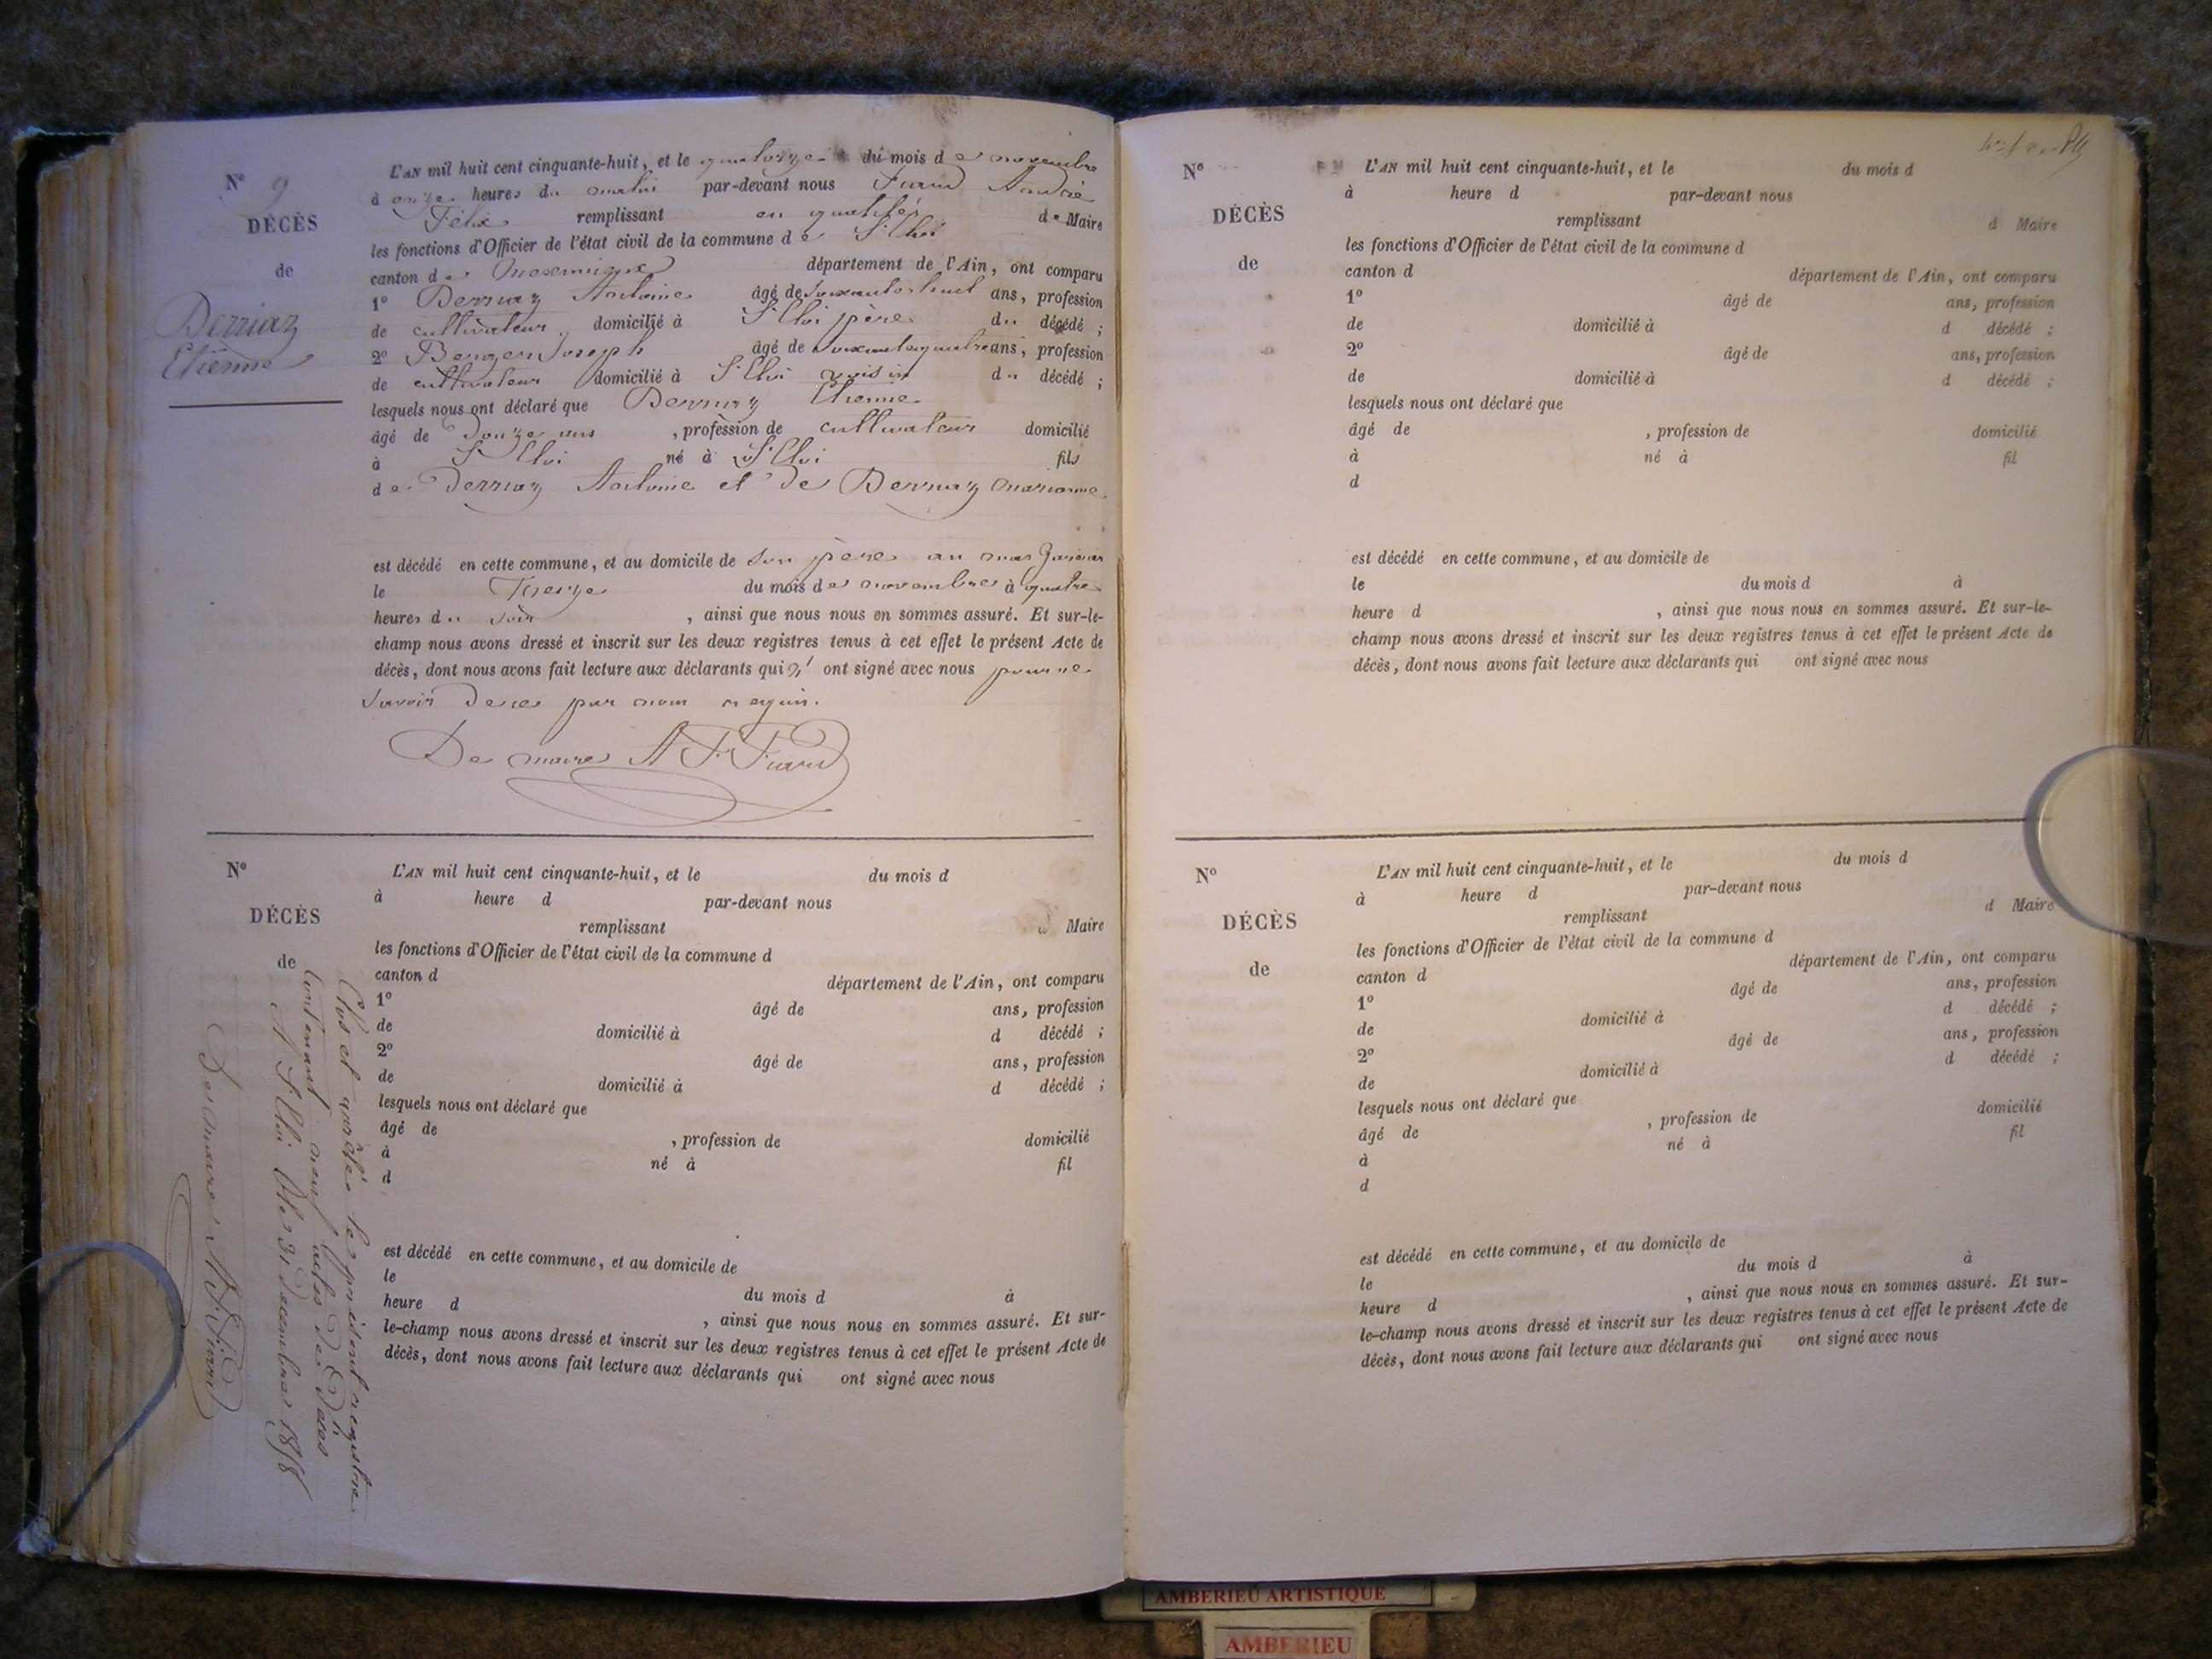 N° 9
DÉCÈS
de
Derriaz
Etienne
L'AN mil huit cent cinquante-huit, et le quatorze du mois de novembre
à onze heures du matin par-devant nous Fiard André
Félix remplissant en qualité de Maire
les fonctions d'Officier de l'état civil de la commune de St Eloi
canton de département de l'Ain, ont comparu
1° Derriaz Antoine âgé de soixante huit ans, profession
de cultivateur, domicilié à St Eloi père du décédé ;
2° Berger Joseph âgé de soixante quatre ans, profession
de cultivateur domicilié à St Eloi voisin du décédé ;
lesquels nous ont déclaré que Derriaz Etienne
âgé de douze ans , profession de cultivateur domicilié
à St Eloi né à St Eloi fils
de Derriaz Antoine et de Derriaz Marianne
est décédé en cette commune, et au domicile de son père au mas
le Treize du mois de novembre à quatre
heures du soir , ainsi que nous nous en sommes assuré. Et sur-le-
champ nous avons dressé et inscrit sur les deux registres tenus à cet effet le présent Acte de
décès, dont nous avons fait lecture aux déclarants qui n' ont signé avec nous pour ne
savoir de ce par nous requis.
Le maire A F Fiard
N°
DÉCÈS
de
L'AN mil huit cent cinquante-huit, et le du mois d
à heure d par-devant nous
remplissant d Maire
les fonctions d'Officier de l'état civil de la commune d
canton d département de l'Ain, ont comparu
1° âgé de ans, profession
de domicilié à d décédé ;
2° âgé de ans, profession
de domicilié à d décédé ;
lesquels nous ont déclaré que
âgé de , profession de domicilié
à né à fil
d
est décédé en cette commune, et au domicile de
le du mois d à
heure d , ainsi que nous nous en sommes assuré. Et sur-
le-champ nous avons dressé et inscrit sur les deux registres tenus à cet effet le présent Acte de
décès, dont nous avons fait lecture aux déclarants qui ont signé avec nous
Clos et arrêté le présent registre
contenant neuf actes de Décès
A St Eloi le 31 Décembre 1858
Le maire A F Fiard
N°
DÉCÈS
de
L'AN mil huit cent cinquante-huit, et le du mois d
à heure d par-devant nous
remplissant d Maire
les fonctions d'Officier de l'état civil de la commune d
canton d département de l'Ain, ont comparu
1° âgé de ans, profession
de domicilié à d décédé ;
2° âgé de ans, profession
de domicilié à d décédé ;
lesquels nous ont déclaré que
âgé de , profession de domicilié
à né à fil
d
est décédé en cette commune, et au domicile de
le du mois d à
heure d , ainsi que nous nous en sommes assuré. Et sur-le-
champ nous avons dressé et inscrit sur les deux registres tenus à cet effet le présent Acte de
décès, dont nous avons fait lecture aux déclarants qui ont signé avec nous
N°
DÉCÈS
de
L'AN mil huit cent cinquante-huit, et le du mois d
à heure d par-devant nous
remplissant d Maire
les fonctions d'Officier de l'état civil de la commune d
canton d département de l'Ain, ont comparu
1° âgé de ans, profession
de domicilié à d décédé ;
2° âgé de ans, profession
de domicilié à d décédé ;
lesquels nous ont déclaré que
âgé de , profession de domicilié
à né à fil
d
est décédé en cette commune, et au domicile de
le du mois d à
heure d , ainsi que nous nous en sommes assuré. Et sur-
le-champ nous avons dressé et inscrit sur les deux registres tenus à cet effet le présent Acte de
décès, dont nous avons fait lecture aux déclarants qui ont signé avec nous
AMBERIEU ARTISTIQUE
AMBERIEU